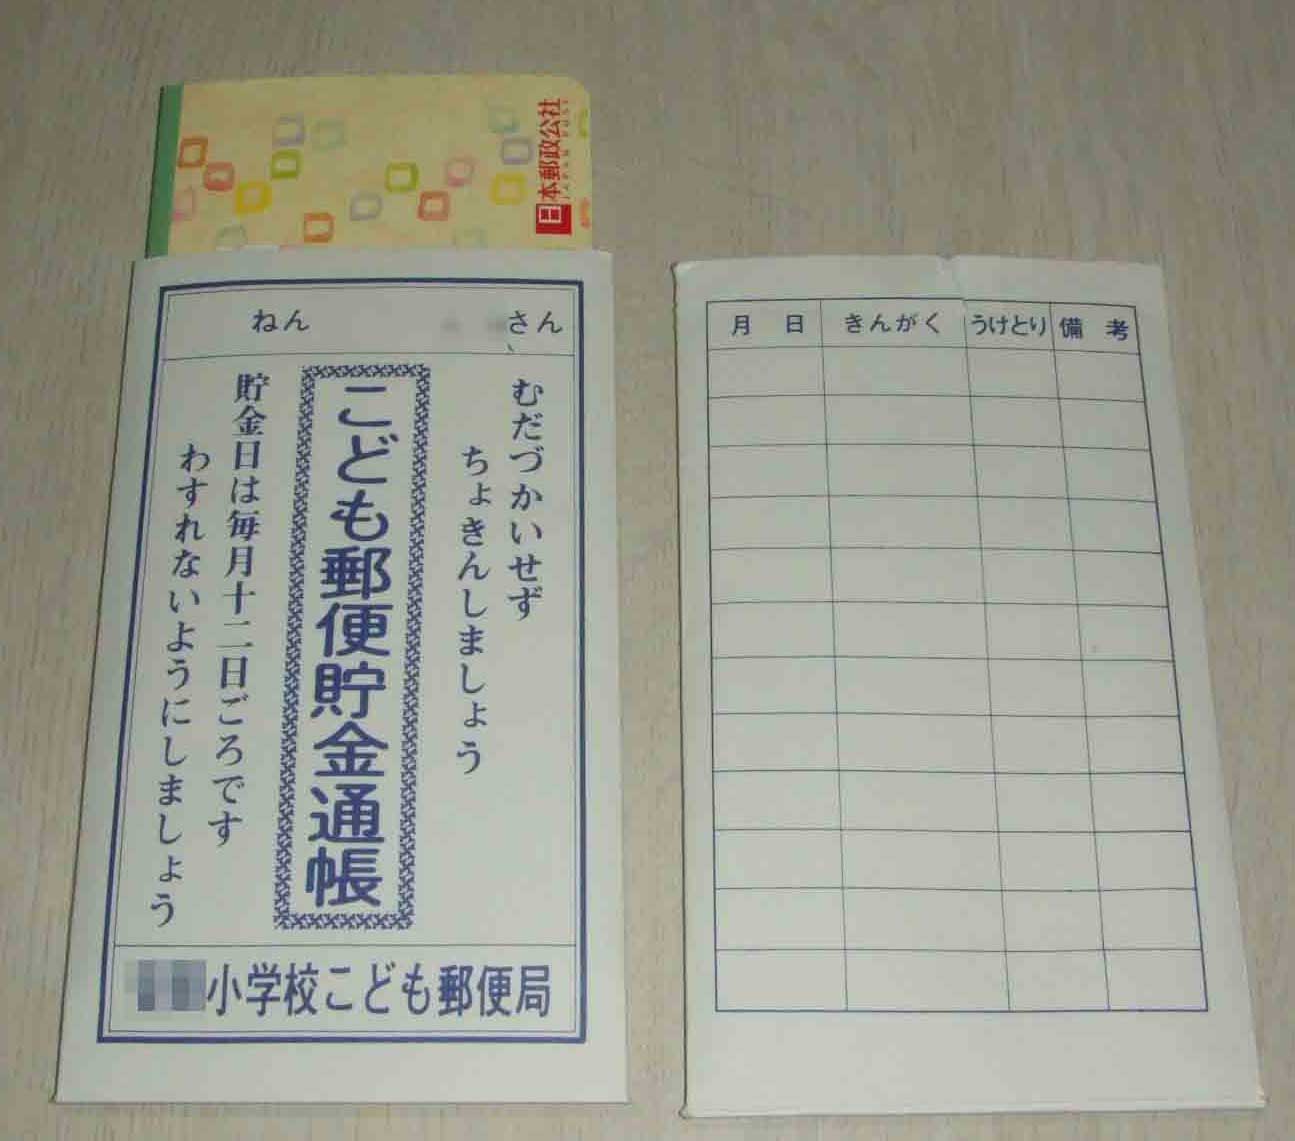 日本郵政公社
JAPAN POST
ねん
さん
むだづかいせず
ちょきんしましょう
こども郵便貯金通帳
貯金日は毎月十二日ごろです
わすれないようにしましょう
小学校こども郵便局
月 日 きんがく うけとり 備 考